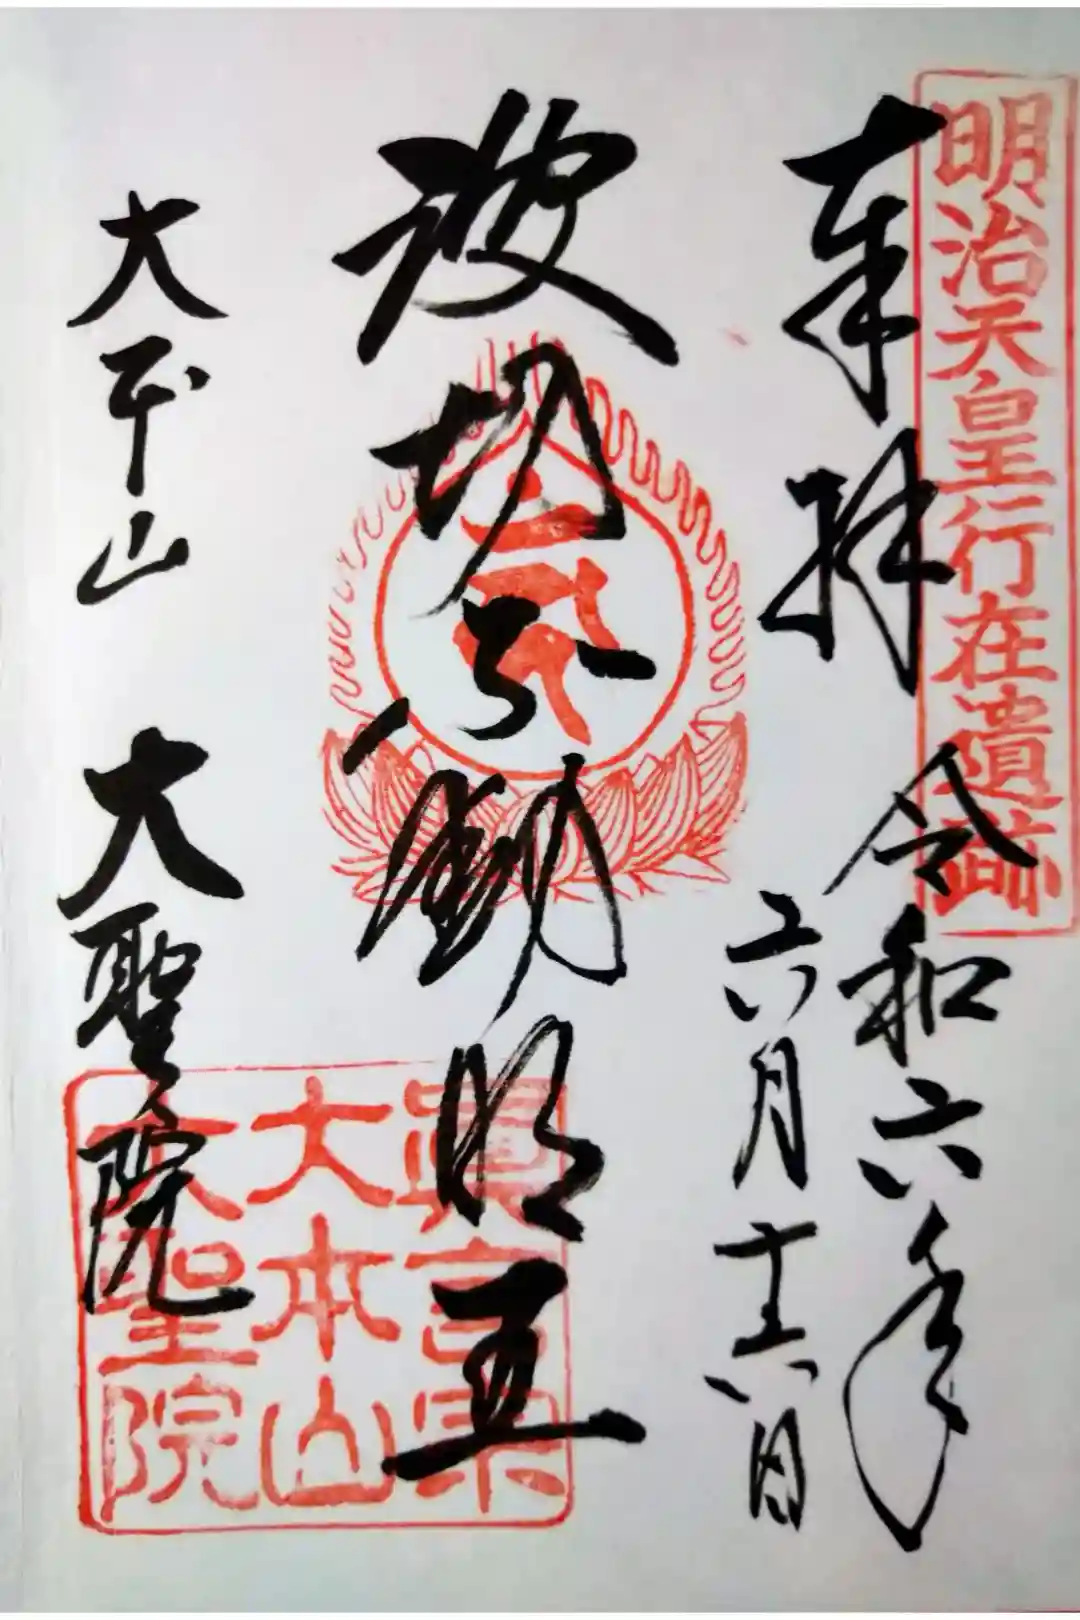 明治天皇行在遺跡
奉拝
令和六年
六月十六日
波切不動明王
大本山 大聖院
真言宗
大本山
大聖院